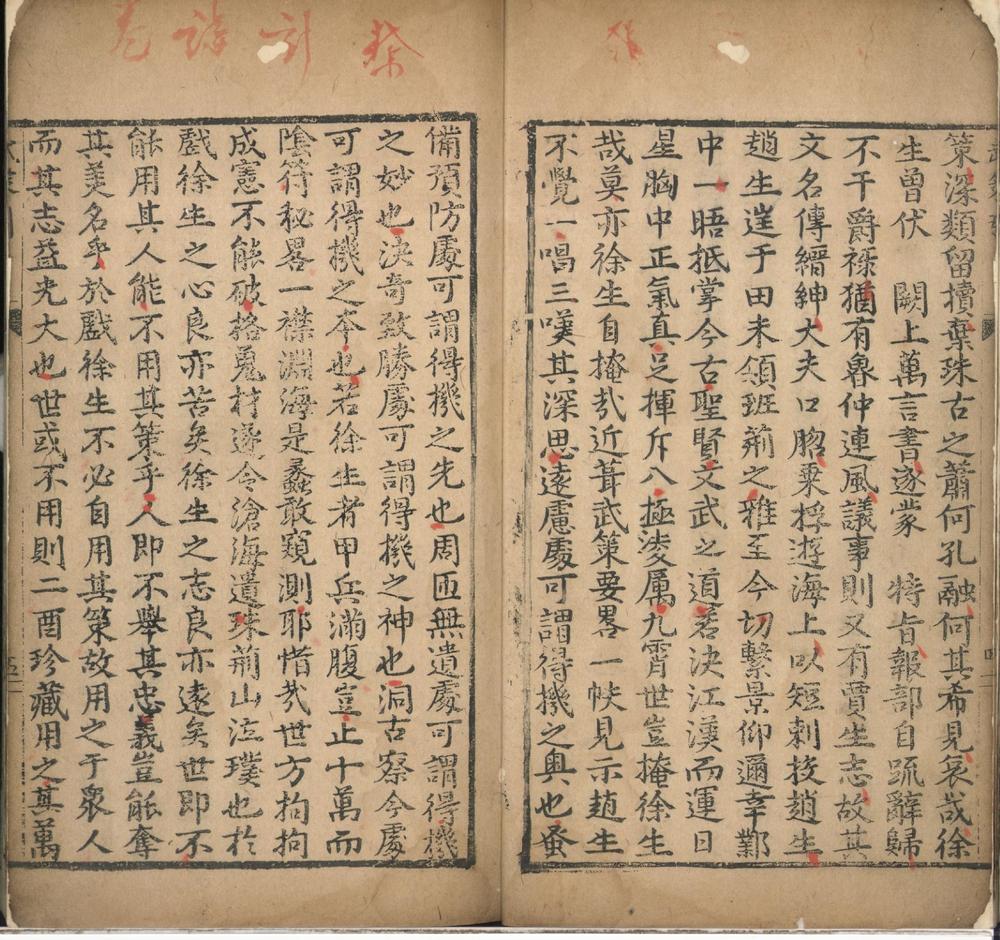 策深類留櫝棄珠古之蕭何孔融何其希見哀哉徐
生曾伏　闕上萬言書遂蒙　特旨報部自疏辭歸
不干爵祿猶有魯仲連風議事則又有賈生志故其
文名傳縉紳大夫口腏粟桴遊海上以短刺投趙生
趙生逞于田未領班荊之雅至今切繫景仰邇幸鄴
中一晤抵掌今古聖賢文武之道若決江漢而運日
星胸中正氣真足揮斥八極淩厲九霄世豈掩徐生
哉莫亦徐生自掩哉近葺武策要畧一帙見示趙生
不覺一唱三嘆其深思遠慮處可謂得機之奧也蚤
備預防處可謂得機之先也周匝無遺處可謂得機
之妙也決奇致勝處可謂得機之神也洞古察今處
可謂得機之本也若徐生者甲兵滿腹豈止十萬而
陰符秘畧一襟淵海是蠡敢窺測耶惜哉世方拘拘
成憲不能破格蒐材遂令滄海遺珠荊山泣璞也於
戲徐生之心良亦苦矣徐生之志良亦遠矣世即不
能用其人能不用其策乎人即不舉其忠義豈能奪
其美名乎於戲徐生不必自用其策故用之于衆人
而其志益光大也世或不用則二酉珍藏用之其萬